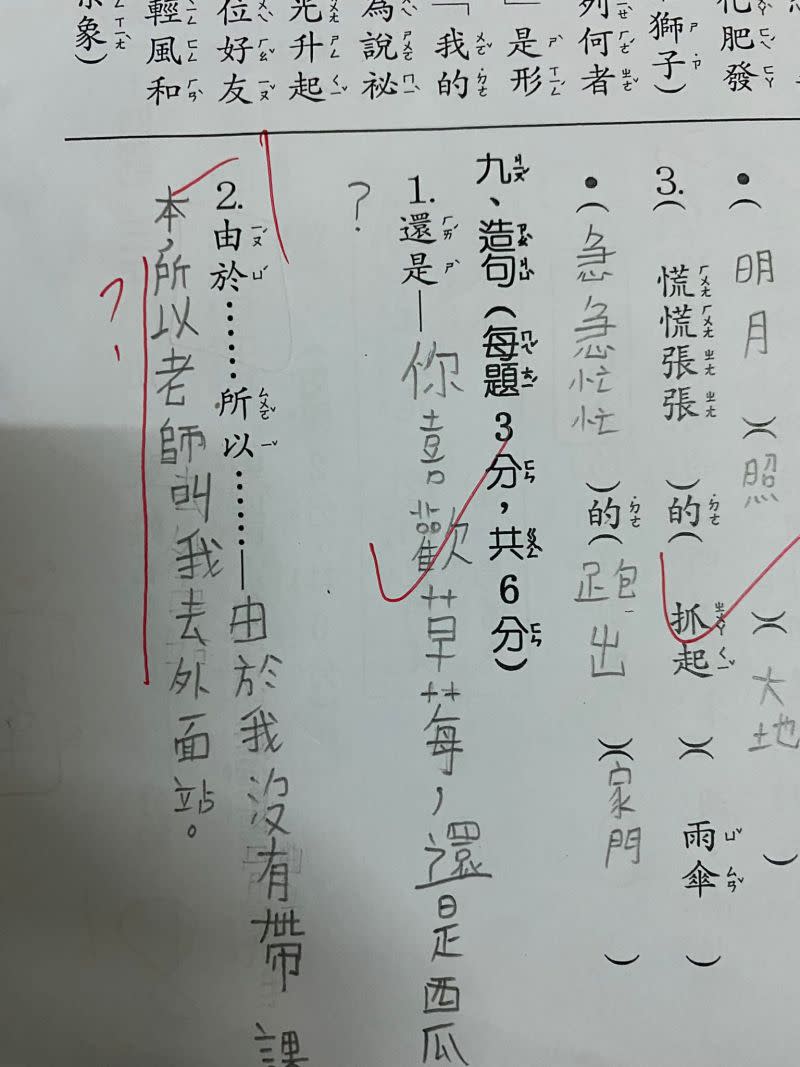 化肥發
獅子)
列何者
」是形
「我的
為說祕
光升起
位好友
輕風和
象)
•(明月)照(大地)
3.(慌慌張張)的(抓起)(雨傘)
•(急急忙忙)的(跑出)(家門)
九、造句(每題3分,共6分)
1.還是—你喜歡草莓,還是西瓜
?
2.由於……所以……—由於我沒有帶課
本,所以老師叫我去外面站。
?